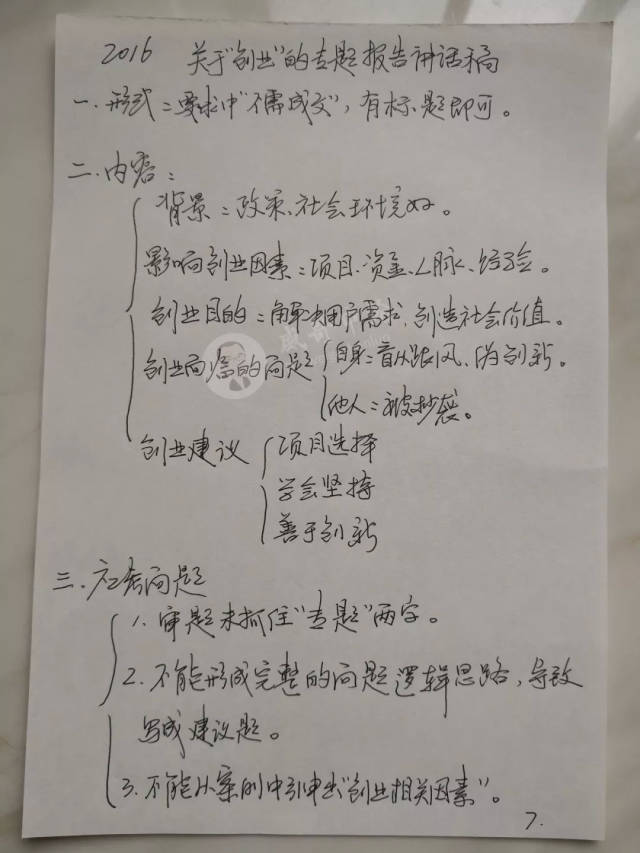 2016 关于"创业"的专题报告讲话稿
一.形式:要求中"不需成文",有标题即可。
二.内容:
背景:政策、社会环境好。
影响创业因素:项目、资金、人脉、经验。
创业目的:解决用户需求,创造社会价值。
创业面临的问题 自身:盲从跟风、伪创新。
他人:被抄袭。
创业建议 项目选择
学会坚持
善于创新
三.应答问题
1.审题未抓住"专题"两字。
2.不能形成完整的问题逻辑思路,导致
写成建议题。
3.不能从案例中引申出"创业相关因素"。
7.